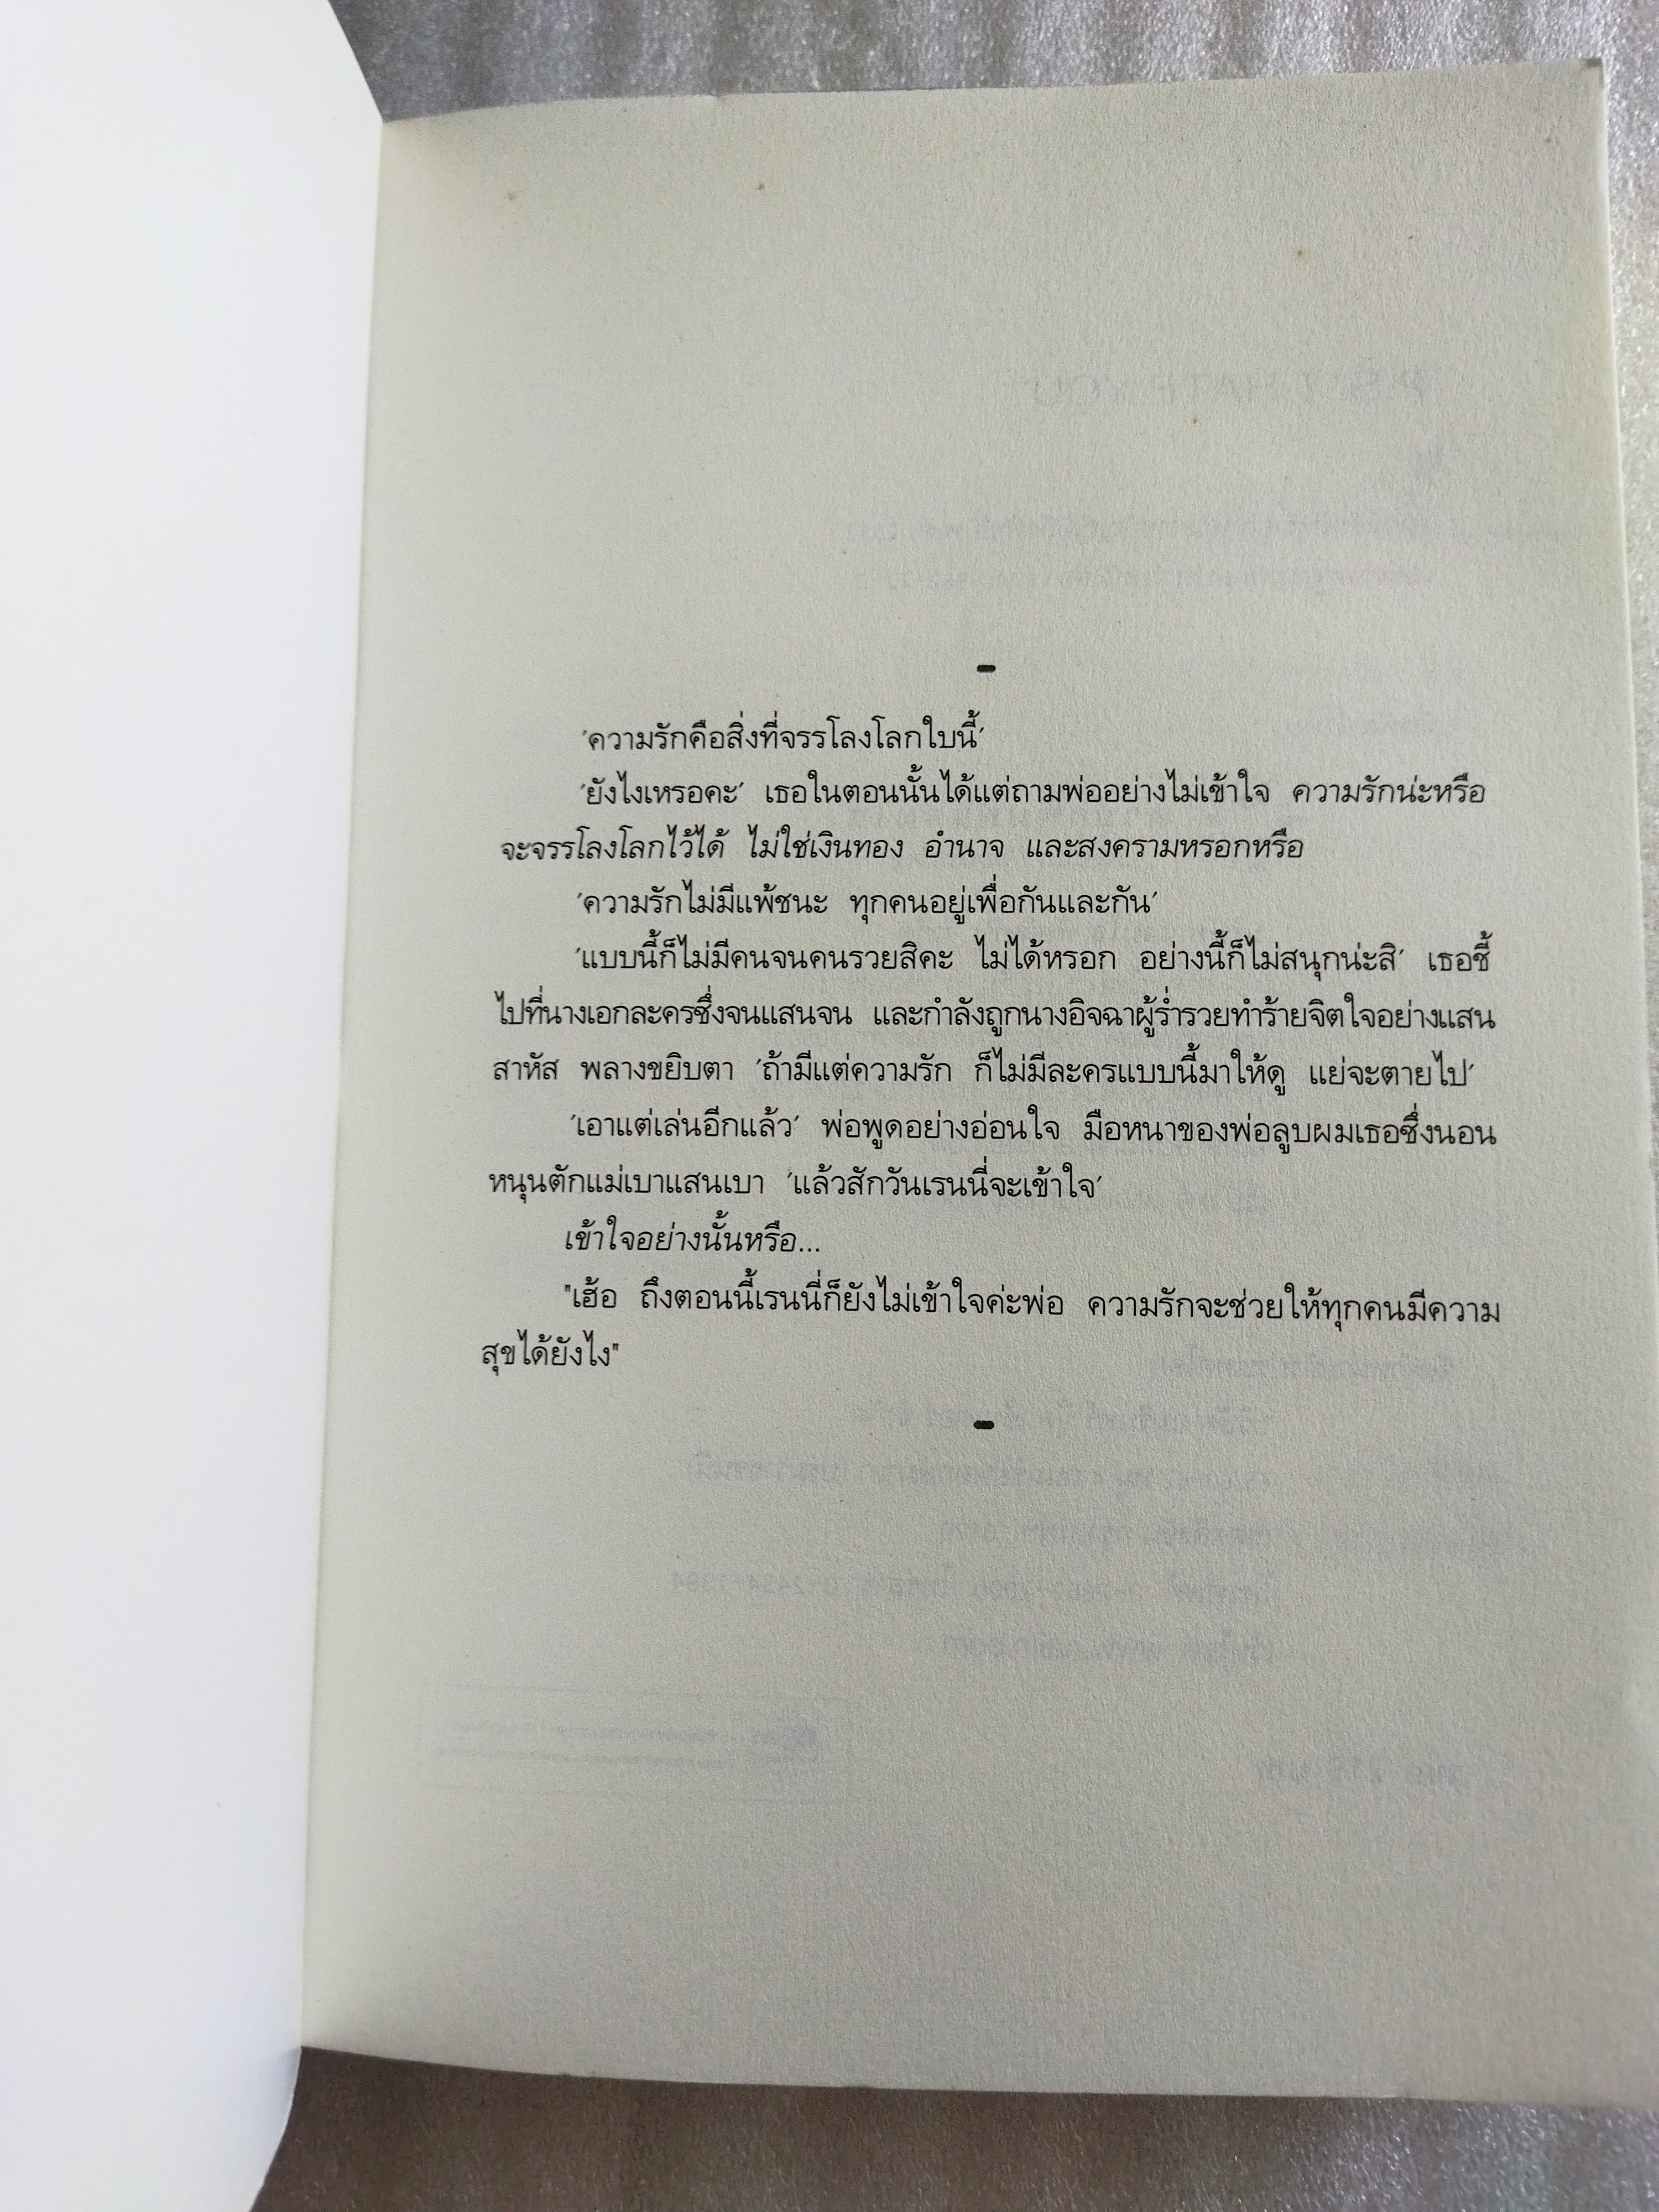 -
'ความรักคือสิ่งที่จรรโลงโลกใบนี้'
'ยังไงเหรอคะ' เธอในตอนนั้นได้แต่ถามพ่ออย่างไม่เข้าใจ ความรักน่ะหรือ
จะจรรโลงโลกไว้ได้ ไม่ใช่เงินทอง อำนาจ และสงครามหรอกหรือ
'ความรักไม่มีแพ้ชนะ ทุกคนอยู่เพื่อกันและกัน'
'แบบนี้ก็ไม่มีคนจนคนรวยสิคะ ไม่ได้หรอก อย่างนี้ก็ไม่สนุกน่ะสิ' เธอชี้
ไปที่นางเอกละครซึ่งจนแสนจน และกำลังถูกนางอิจฉาผู้ร่ำรวยทำร้ายจิตใจอย่างแสน
สาหัส พลางขยิบตา 'ถ้ามีแต่ความรัก ก็ไม่มีละครแบบนี้มาให้ดู แย่จะตายไป'
'เอาแต่เล่นอีกแล้ว' พ่อพูดอย่างอ่อนใจ มือหนาของพ่อลูบผมเธอซึ่งนอน
หนุนตักแม่เบาแสนเบา 'แล้วสักวันเรนนี่จะเข้าใจ'
เข้าใจอย่างนั้นหรือ...
"เฮ้อ ถึงตอนนี้เรนนี่ก็ยังไม่เข้าใจค่ะพ่อ ความรักจะช่วยให้ทุกคนมีความ
สุขได้ยังไง"
-